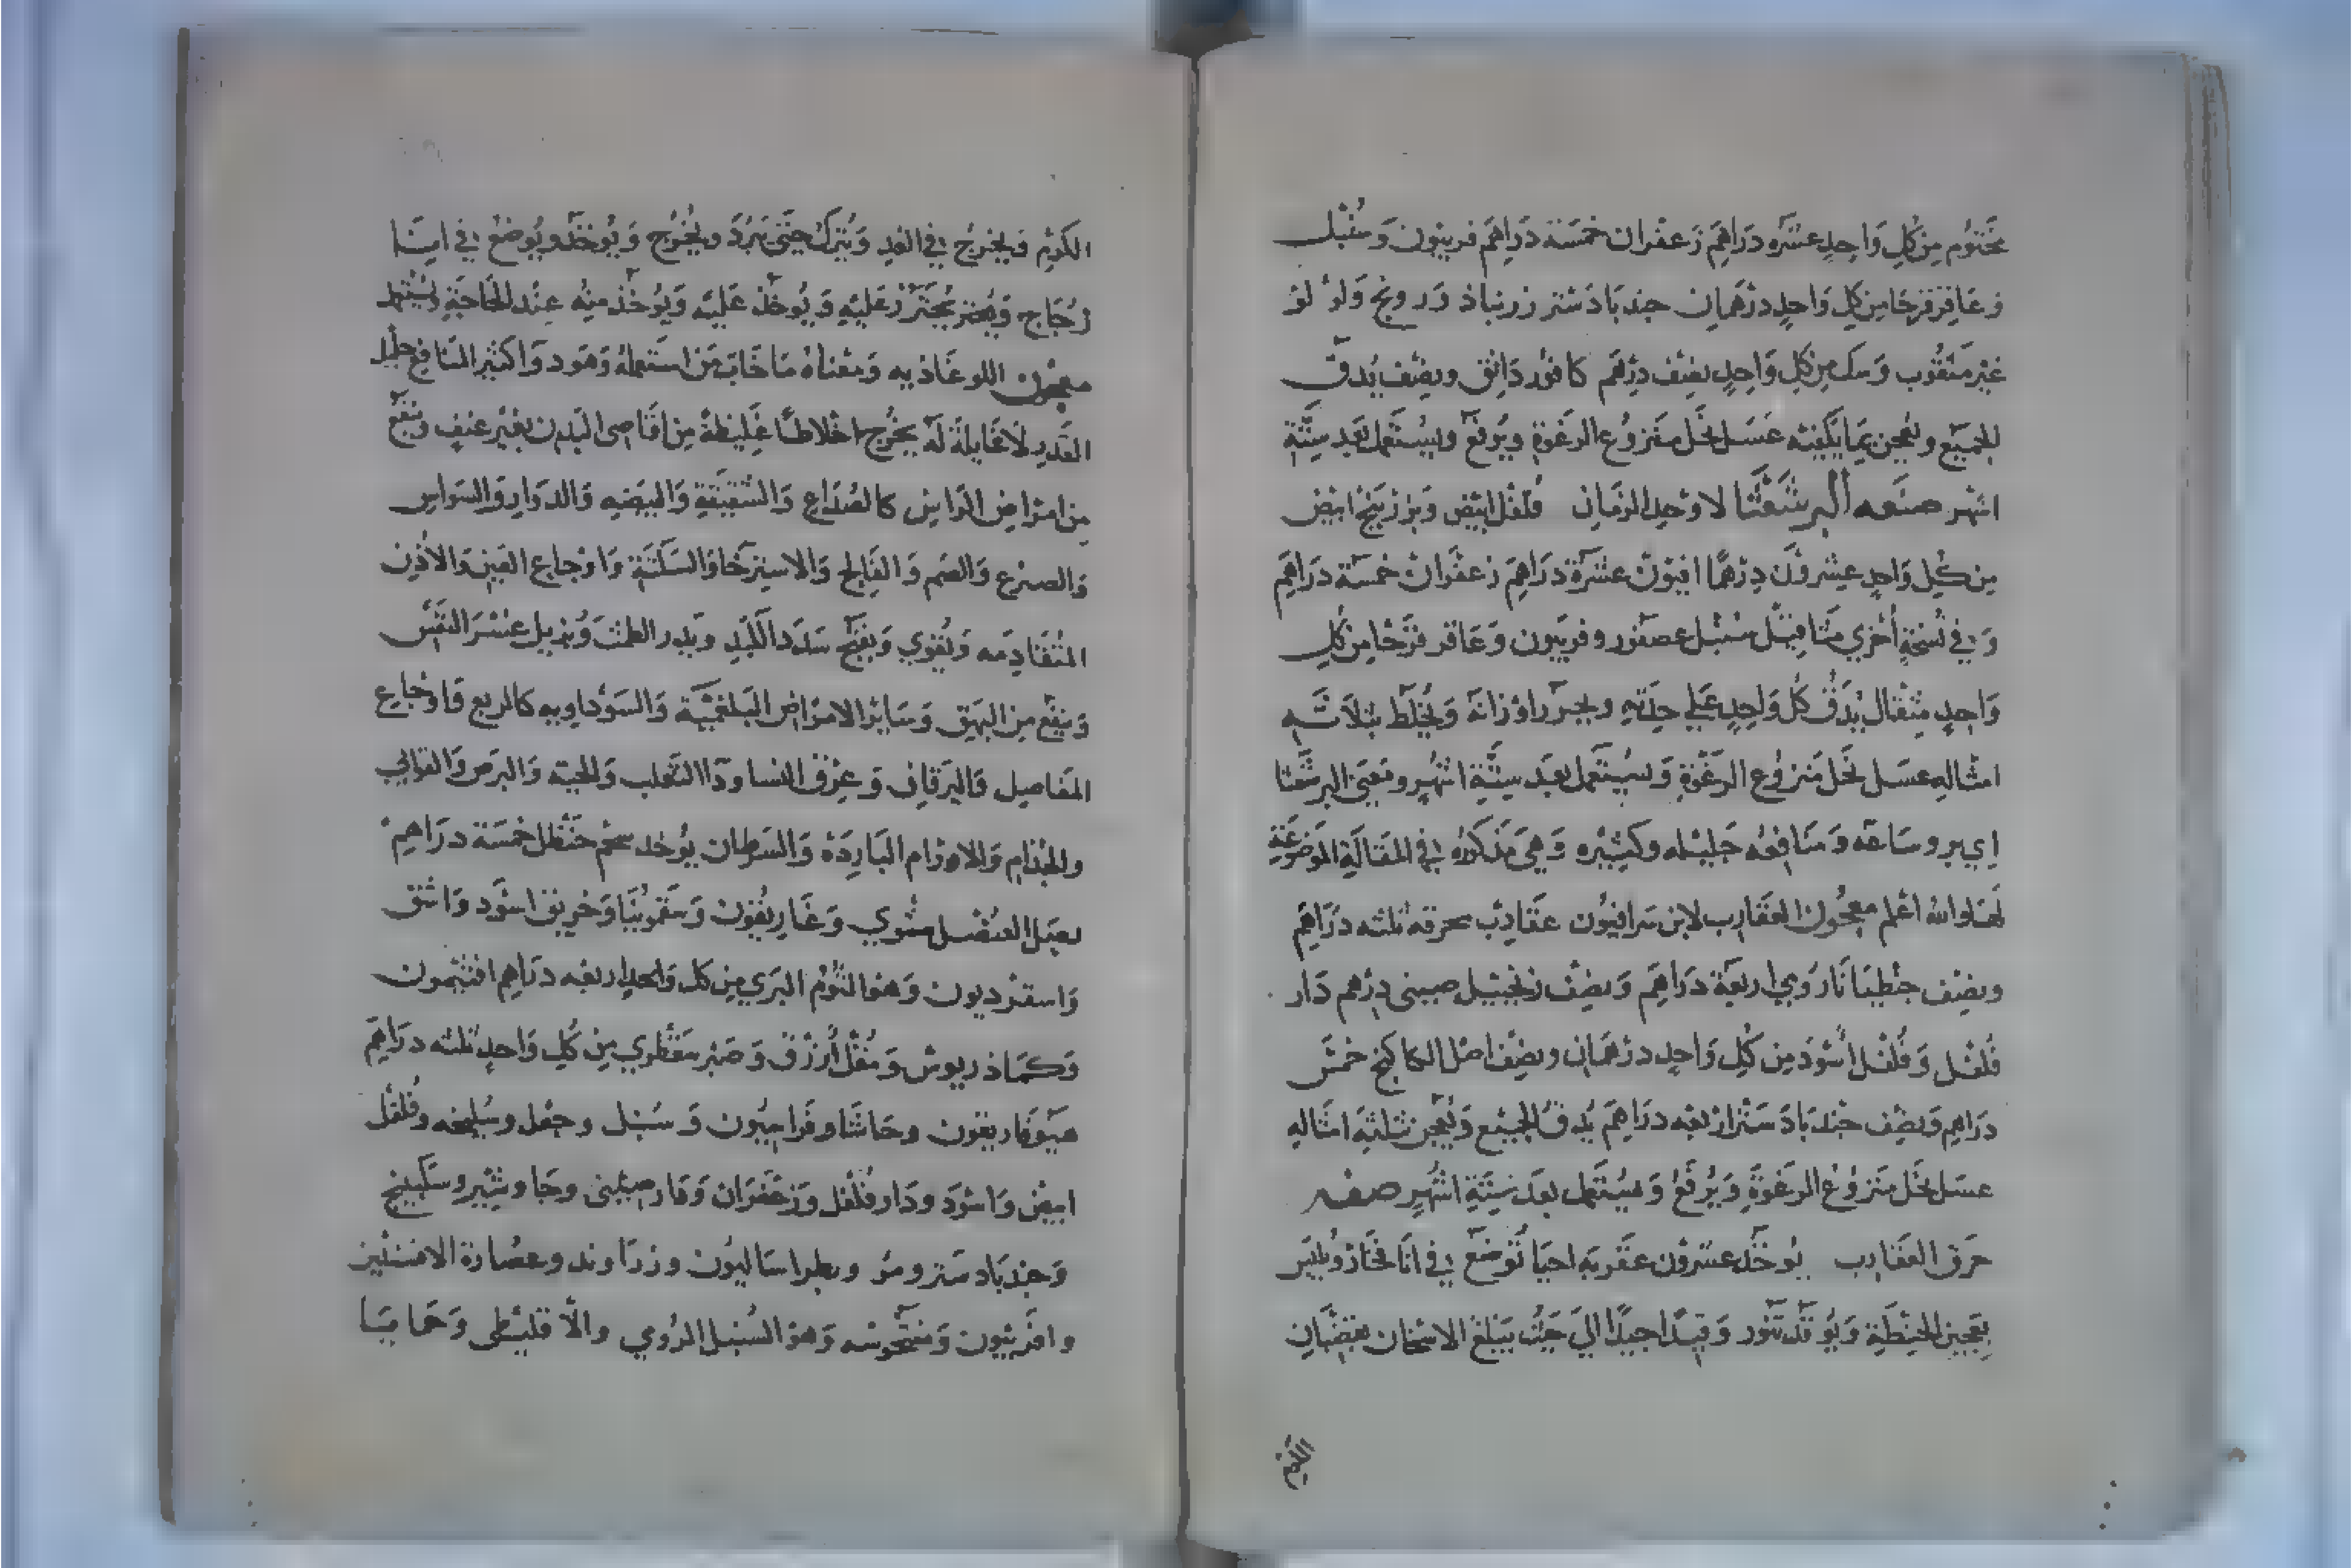 مختوم من كل واحد عشره دراهم زعفران خمسة دراهم فربيون وسنبل
وعاقرقرحا من كل واحد درهمان جندبادستر زرنباد ودرونج ولولو
غير مثقوب وسك من كل واحد نصف درهم كافور دانق ونصف يدق
الجميع ويعجن بما يكفيه عسل نحل منزوع الرغوة ويرفع ويستعمل بعد ستة
اشهر صنعه البرشعثا لاوحد الزمان فلفل ابيض وبزر بنج ابيض
من كل واحد عشرون درهما افيون عشرة دراهم زعفران خمسة دراهم
وفي نسخة أخري مثاقيل سنبل عصفور وفربيون وعاقر قرحا من كل
واحد مثقال يدق كل واحد علي حدته ويحرر اوزانه ويخلط بثلاثه
امثاله عسل نحل منزوع الرغوة ويستعمل بعد ستة اشهر ومعني البرشعثا
اي برو ساعه ومنافعه جليله وكثيره وهي مذكوره في المقالة الموضوعة
لها والله اعلم معجون العقارب لابن سرافيون عقارب محرقه ثلثه دراهم
ونصف جنطيانا رومي اربعة دراهم ونصف زنجبيل صيني درهم دار
فلفل وفلفل أسود من كل واحد درهمان ونصف اصل الكاكنج خمس
دراهم ونصف جندبادستر اربعه دراهم يدق الجميع ويعجن بثلثة امثاله
عسل نحل منزوع الرغوة ويرفع ويستعمل بعد ستة اشهر صفه
حرق العقارب يوخذ عشرون عقربه احيا توضع في انا فخار ويطين
بعجين الحنطة ويوقد تنور وقيدا جيدا الي حيث يبلغ الاسخان بقضبان
الكرم
الكرم ويخرج في الغد ويترك حتى يبرد ويخرج ويوخذ ويوضع في انا
زجاج ويحترز عليه ويوخذ منه عند الحاجة يستعمل
معجون اللوغاذيه ومعناه ما خاب من استعمله وهو دوا كثير المنافع جليل
القدر لا مقابلة له يخرج اخلاطا غليظة من اقاصى البدن بغير عنف وينفع
من امراض الراس كالصداع والشقيقة والبيضه والدوار والسواس
والصرع والصم والفالج والاسترخا والسكتة واوجاع العين والأذن
المتقادمه ويقوي ويفتح سدد الكبد ويدر الطمث ويزيل عسر النفس
وينفع من البهق وساير الامراض البلغمية والسوداويه كالربع واوجاع
المفاصيل واليرقان وعرق النسا ودا الثعلب والحيه والبرص والقوابي
والجذام والاورام الباردة والسرطان يوخد شحم حنظل خمسة دراهم
بصل العنصل مشوي وغاريقون وسقمونيا وخربق اسود واشق
واسقرديون وهو الثوم البري من كل واحد اربعه دراهم افتيمون
وكماذريوس ومقل أزرق وصبر سقطري من كل واحد ثلثه دراهم
هيوفاريقون وحاشا وفراسيون وسنبل وجعل وسليخه وفلفل
ابيض واسود ودار فلفل وزعفران ودار صيني وجاوشير وسكبينج
وجندبادستر ومر وبطراساليون وزراوند وعصارة الافسنتين
وافربيون وهو السنبل الرومي والاقليطى وحماميا